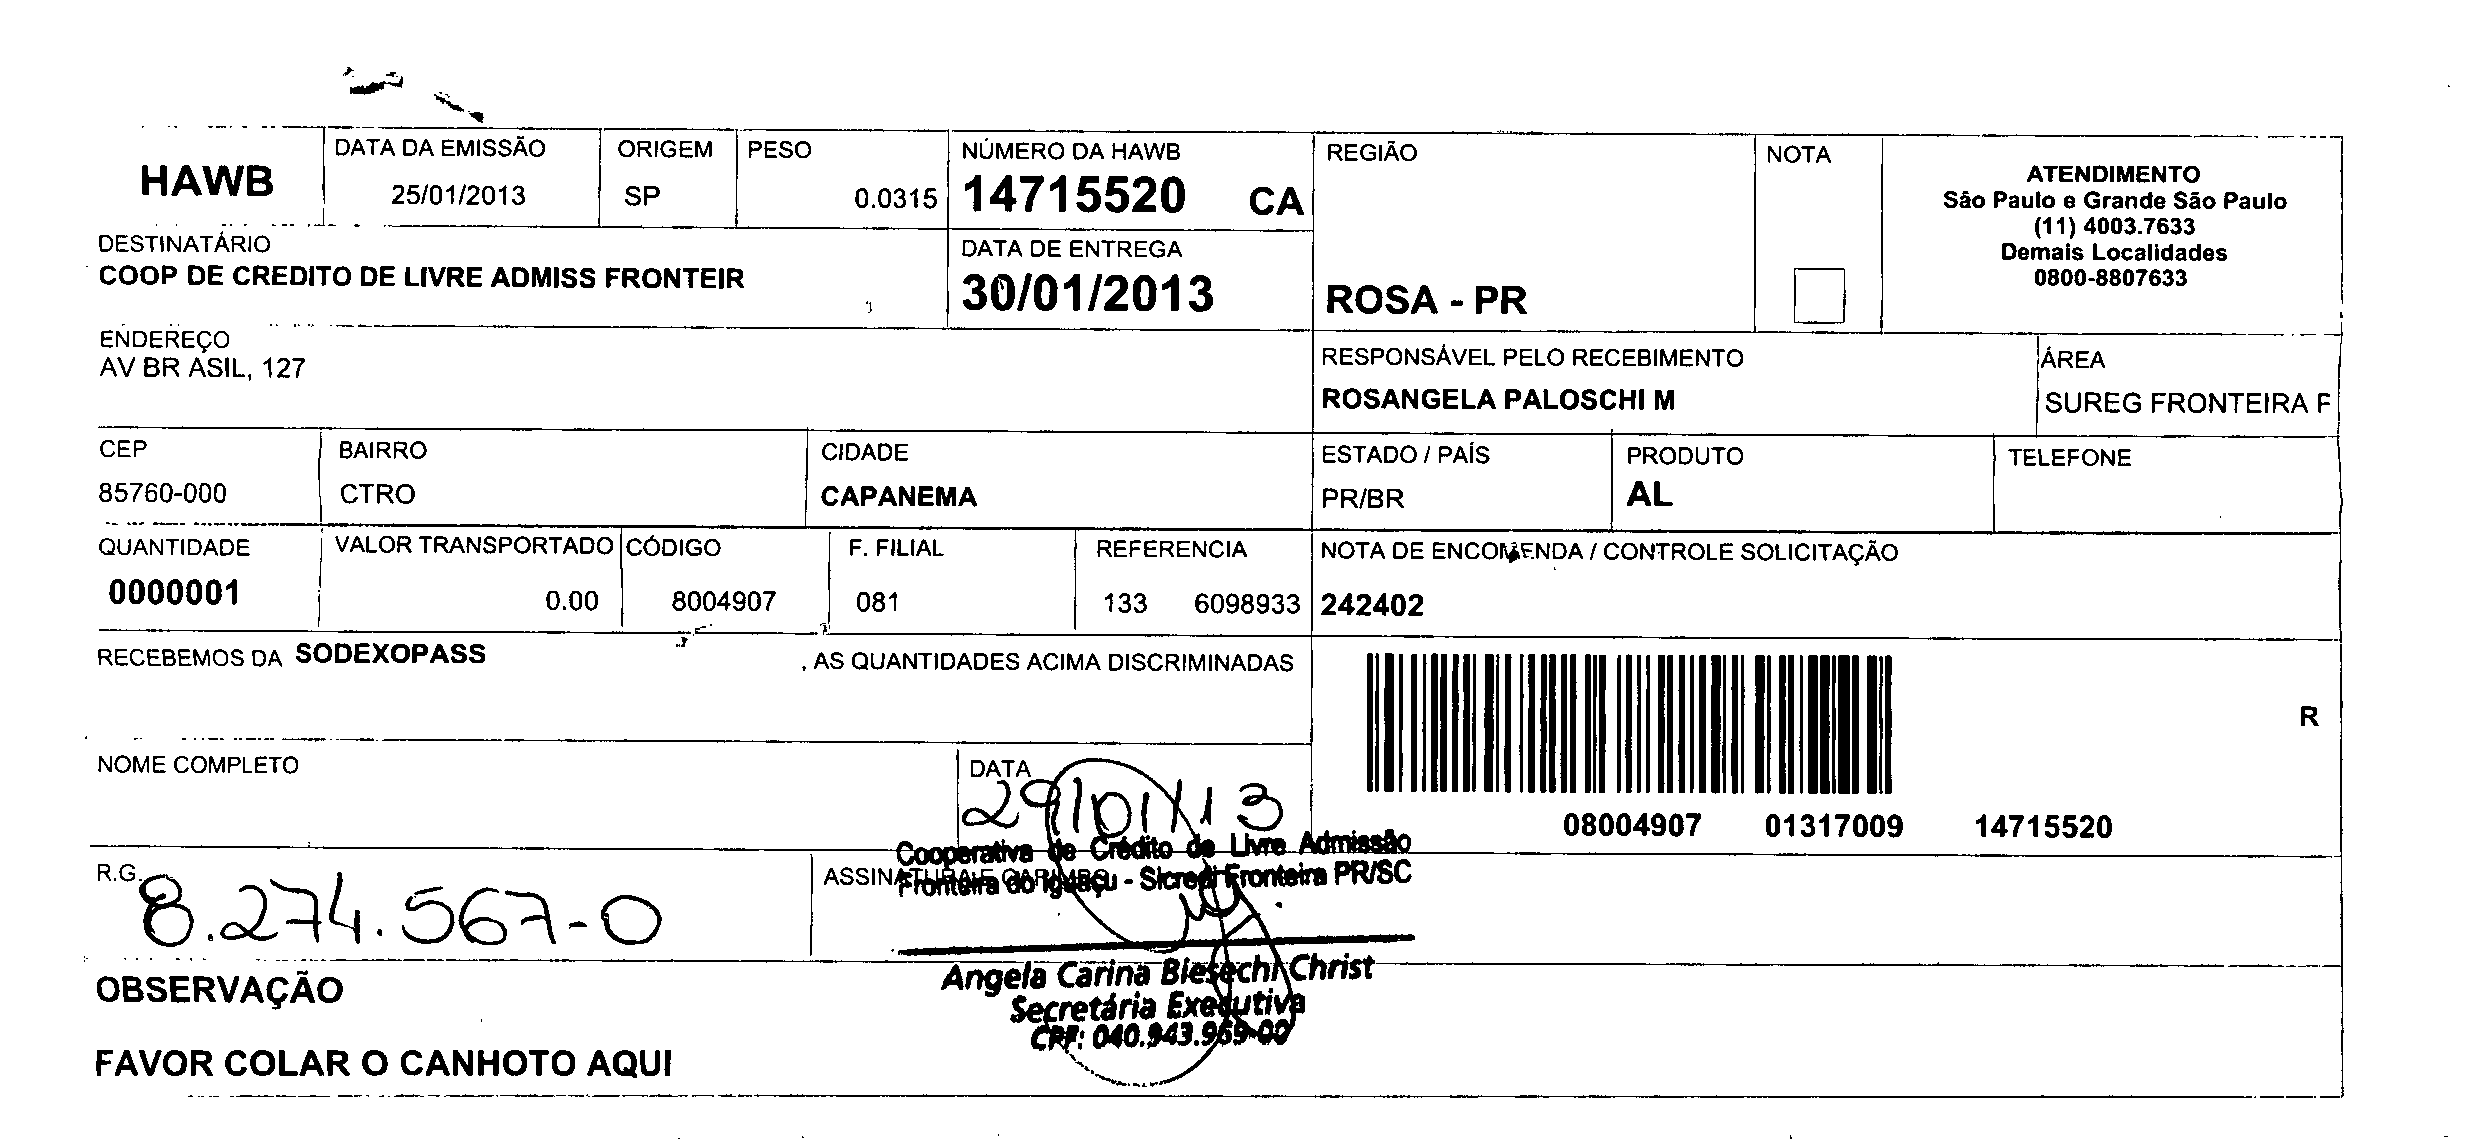 HAWB
DATA DA EMISSÃO
25/01/2013
ORIGEM
SP
PESO
0.0315
NÚMERO DA HAWB
14715520 CA
REGIÃO
ROSA - PR
NOTA
ATENDIMENTO
São Paulo e Grande São Paulo
(11) 4003.7633
Demais Localidades
0800-8807633
DESTINATÁRIO
COOP DE CREDITO DE LIVRE ADMISS FRONTEIR
DATA DE ENTREGA
30/01/2013
ENDEREÇO
AV BR ASIL, 127
RESPONSÁVEL PELO RECEBIMENTO
ROSANGELA PALOSCHI M
ÁREA
SUREG FRONTEIRA F
CEP
85760-000
BAIRRO
CTRO
CIDADE
CAPANEMA
ESTADO / PAÍS
PR/BR
PRODUTO
AL
TELEFONE
QUANTIDADE
0000001
VALOR TRANSPORTADO
0.00
CÓDIGO
8004907
F. FILIAL
081
REFERENCIA
133 6098933
NOTA DE ENCOMENDA / CONTROLE SOLICITAÇÃO
242402
RECEBEMOS DA SODEXOPASS , AS QUANTIDADES ACIMA DISCRIMINADAS
R
08004907 01317009 14715520
NOME COMPLETO
DATA
29/01/13
R.G.
8.274.567-0
ASSINATURA E CARIMBO
Cooperativa de Crédito de Livre Admissão
Fronteira do Iguaçu - Sicredi Fronteira PR/SC
Angela Carina Biesechi Christ
Secretária Executiva
CPF: 040.943.969-00
OBSERVAÇÃO
FAVOR COLAR O CANHOTO AQUI